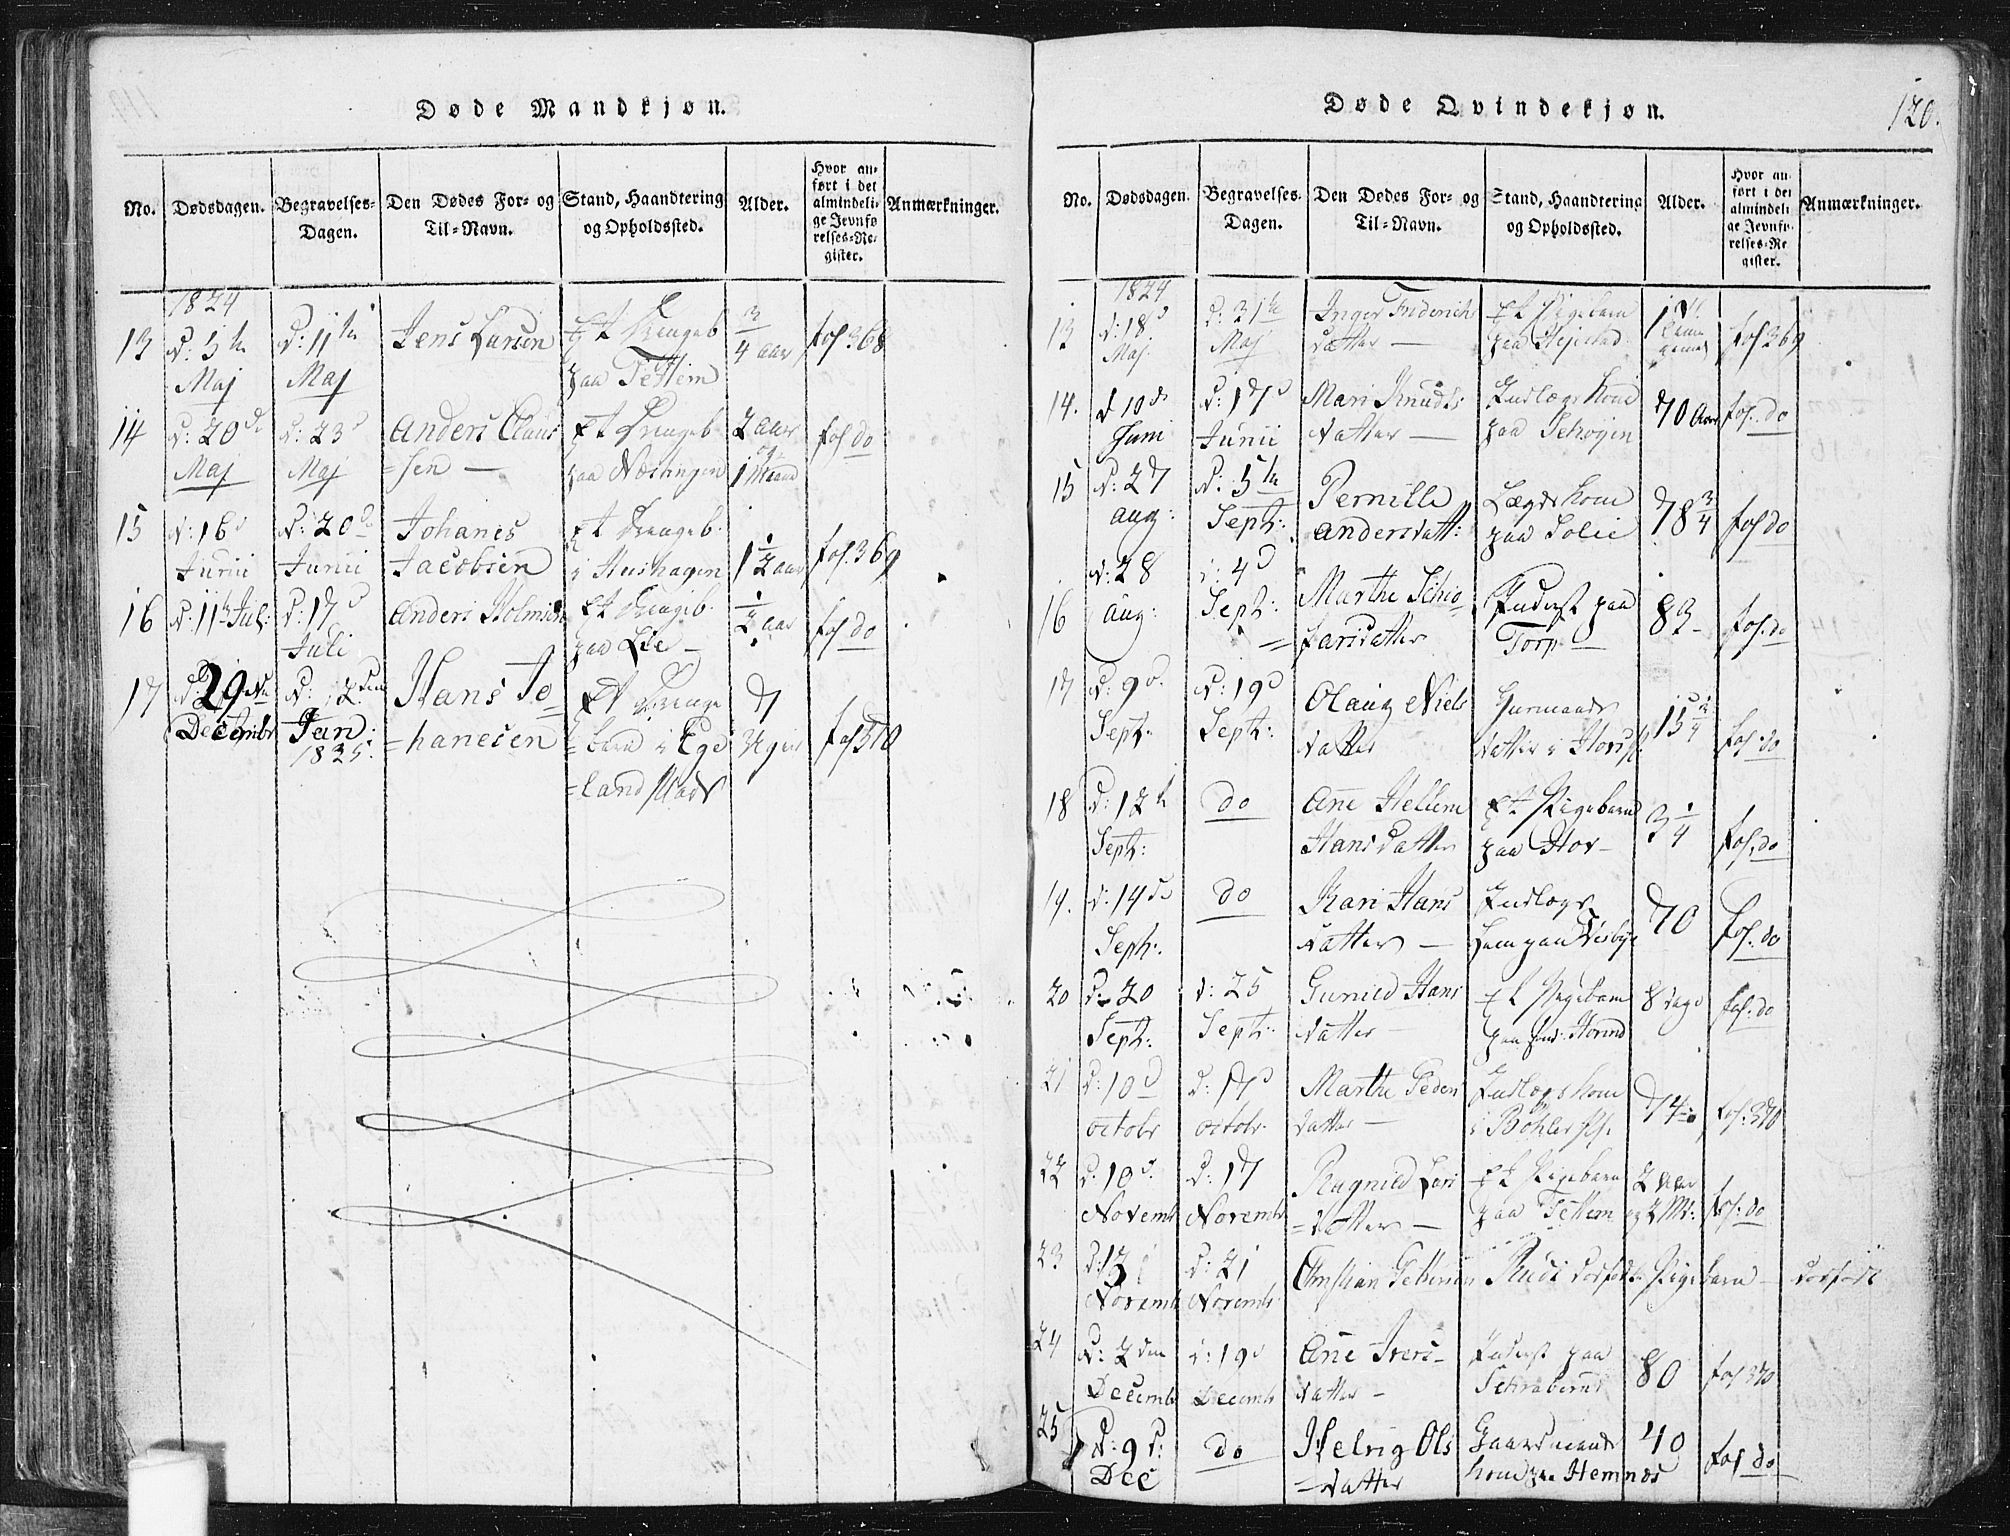 Døde Mandkjøn.
No. Dødsdagen. Begravelses-Dagen. Den Dødes For- og Til-Navn. Stand, Haandtering og Opholdssted. Alder. Hvor anført i det almindelige Jevnførelses-Register. Anmærkninger.
1824
13 d: 5te Maj d: 11te Maj Jens Larsen Et Drengeb paa Tettem 3/4 aar fol 368
14 d: 20de Maj d: 23d Maj Anders Claus=sen — Et Drengeb paa Næstingen 2 aar og 1 Maaned fol do
15 d: 16d Junii d: 20de Junii Johanes Jacobsen Et Drengeb. i Hushagen 1 1/2 aar fol. 369
16 d: 11te Jul: d: 17d Juli Anders Holmsen Et Drengeb. paa Lie — 1/2 aar fol do
17 29de Decembr d: 12den Jan: 1825. Hans Jo=hanesen Et Drenge=barn i Ege=land plads 7 Uger fol 370
Døde Qvindekjøn.
120.
No. Dødsdagen. Begravelses-Dagen. Den Dødes For- og Til-Navn. Stand, Haandtering og Opholdssted. Alder. Hvor anført i det almindelige Jevnførelses-Register. Anmærkninger.
1824
13 d: 18d Maj d: 21de Maj Inger Friderichsdatter — Et Pigebarn paa fol 369
14. d 10de Juni d: 17d Junii Mari Knudsdatter — Indlægs kone paa Schogen 70 Aar fol. do
15 d: 27 aug: d: 5te Sept: Pernille andersdatt: Lægds kone paa Solie 78 3/4 fol do
16 d: 28 aug: d: 4d Sept: Marthe Schio=farsdatter Inderst paa Torp 83 — fol. do
17 d: 9d Sept: d: 19d Sept: Olaug Nielsdatter Huusmands datter i 15 3/4 fol. do
18 d: 12te Sept: do Ane Hellene Hansdatter Et Pigebarn paa Hov — 3 1/4 fol. do
19. d: 14de Sept: do Kari Hansdatter — Indlægs kone paa Visbye 70 fol. do
20 d: 20 Sept: d: 25 Sept: Gunild Hansdatter — Et Pigebarn paa Horind 8 dage fol. do
21 d: 10d octobr d: 17d octobr. Marthe Pedersdatter — Indlægs kone i Böhler 74 fol. 370
22 d: 10d. Novembr d: 17 Novembr Ragnild Lars=datter — Et Pigebarn paa Tettem 2 Aar og 2 Mr: fol: do
23 Novembr d: 21 Novembr Christian Pettersen Ruds dødfødte Pigebarn — dødfødt
24 d: 2den Decembr d: 19d Decembr Ane Ivers-datter — Inderst paa Schraberud 80 fol 370
25 d: 9d: Dec do Helvig Ols=datter Gaardmands kone paa Hemnæs 40 fol do